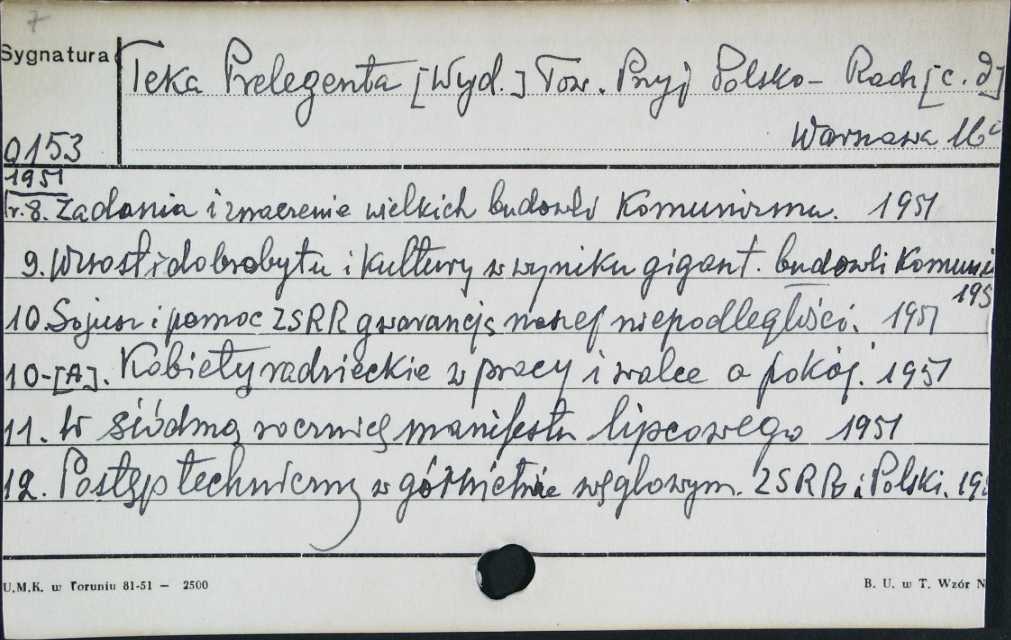 7
Sygnatura Teka Prelegenta [Wyd.] Tow. Przyj Polsko-Radz [c.d]
0153 Warszawa 16°
1951
nr.8. Zadania i znaczenie wielkich budowli Komunizmu. 1951
9. Wzrost dobrobytu i kultury w wyniku gigant. budowli Komuni
195
10. Sojusz i pomoc ZSRR gwarancją naszej niepodległości. 1951
10-[A]. Kobiety radzieckie w pracy i walce o pokój. 1951
11. W siódmą rocznicę manifestu lipcowego 1951
12. Postęp techniczny w górnictwie węglowym. ZSRR i Polski. 19
U.M.K. w Toruniu 81-51 — 2500 B. U. w T. Wzór N